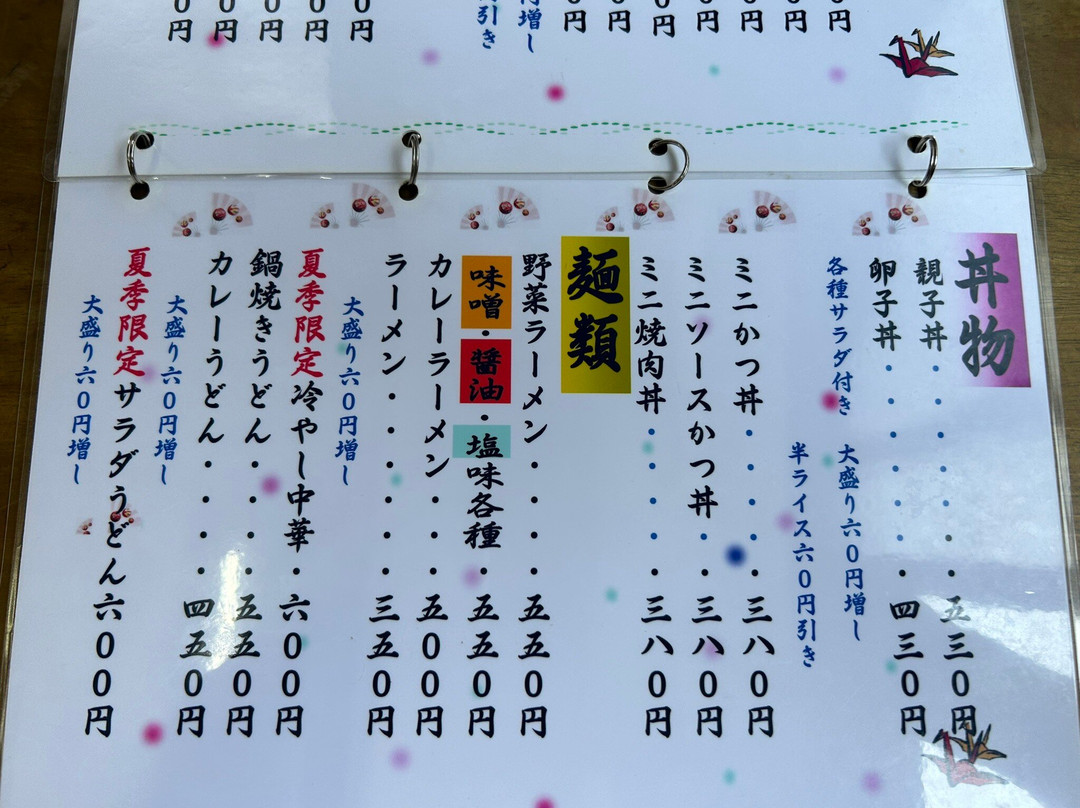 ０円
０円
０円
０円
０円
引き
増し
０円
０円
０円
０円
０円
０円
０円
丼物
親子丼・・・・・・五三０円
卵子丼・・・・・・・四三０円
各種サラダ付き
大盛り六０円増し
半ライス六０円引き
ミニかつ丼・・・・・三八０円
ミニソースかつ丼・・三八０円
ミニ焼肉丼・・・・・三八０円
麺類
野菜ラーメン・・・・五五０円
味噌・醤油・塩味各種・五五０円
カレーラーメン・・・五００円
ラーメン・・・・・・三五０円
大盛り六０円増し
夏季限定冷やし中華・六００円
鍋焼きうどん・・・・五五０円
カレーうどん・・・・四五０円
大盛り六０円増し
夏季限定サラダうどん六００円
大盛り六０円増し